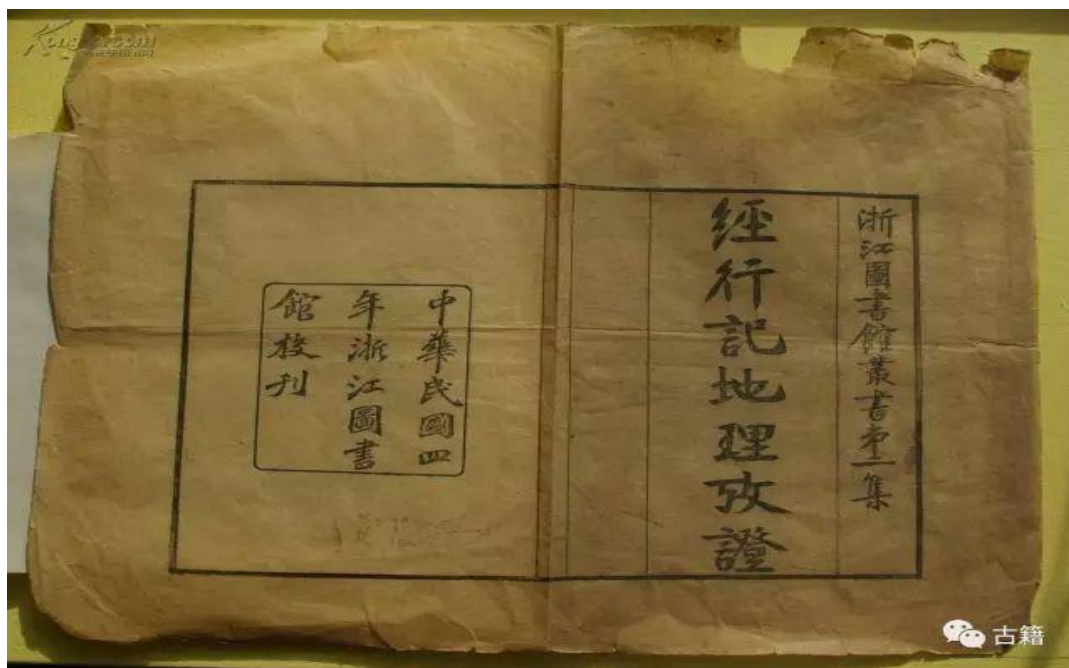 浙江圖書館叢書第二集
經行記地理攷證
中華民國四
年浙江圖書
館校刊
古籍